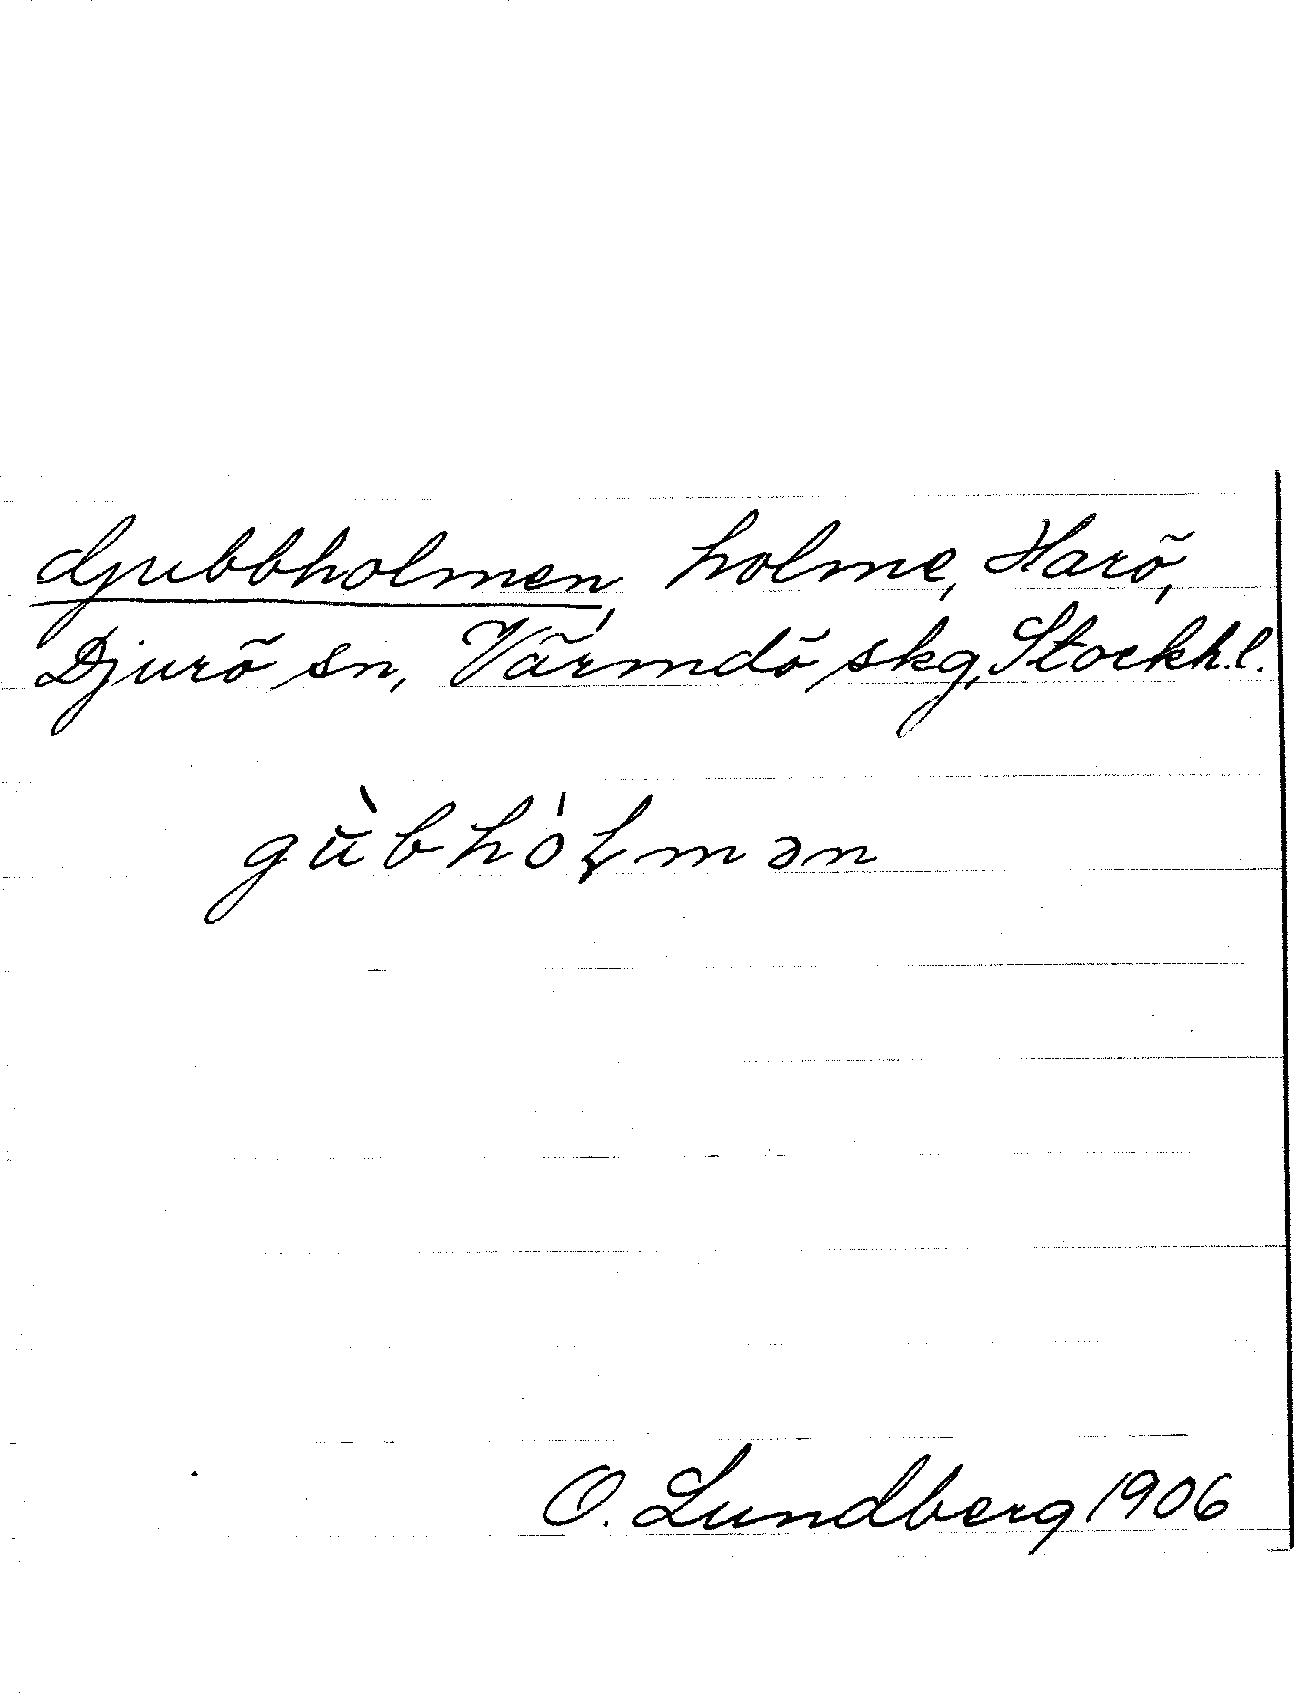 djubbholmen, holme, Harö,
Djurö sn, Värmdö skg, Stockh. l.
gu̇̀bhóḷmən
O. Lundberg 1906